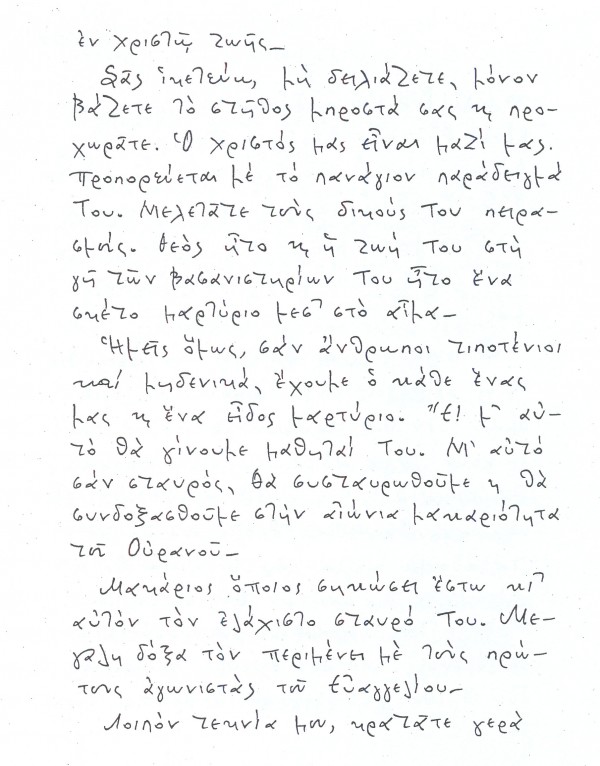 ἐν χριστῷ ζωῆς_
Σᾶς ἱκετεύω, μὴ δειλιάζετε, μόνον
βάζετε τὸ στῆθος μπροστά σας κ προ-
χωρᾶτε. Ὁ χριστός μας εἶναι μαζί μας.
Προπορεύεται μὲ τὸ πανάγιον παράδειγμά
Του. Μελετᾶτε τοὺς δικούς Του πειρα-
σμούς. Θεὸς ἦτο κ ἡ ζωή Του στὴ
γῆ τῶν βασανιστηρίων Του ἦτο ἕνα
σκέτο μαρτύριο μεσ' στὸ αἷμα_
Ἡμεῖς ὅμως, σάν ἄνθρωποι τιποτένιοι
καί μηδενικά, ἔχουμε ὁ κάθε ἕνας
μας κ ἕνα εἶδος μαρτύριο. Ἔ! μ' αὐ-
τὸ θὰ γίνουμε μαθηταί Του. Μ' αὐτό
σάν σταυρός, θὰ συσταυρωθοῦμε κ θὰ
συνδοξασθοῦμε στὴν αἰώνια μακαριότητα
τοῦ Οὐρανοῦ_
Μακάριος ὅποιος σηκώσει ἔστω κι'
αὐτὸν τὸν ἐλάχιστο σταυρό Του. Με-
γάλη δόξα τὸν περιμένει μὲ τοὺς πρώ-
τους ἀγωνιστὰς τοῦ Εὐαγγελίου_
Λοιπὸν τεκνία μου, κρατᾶτε γερὰ